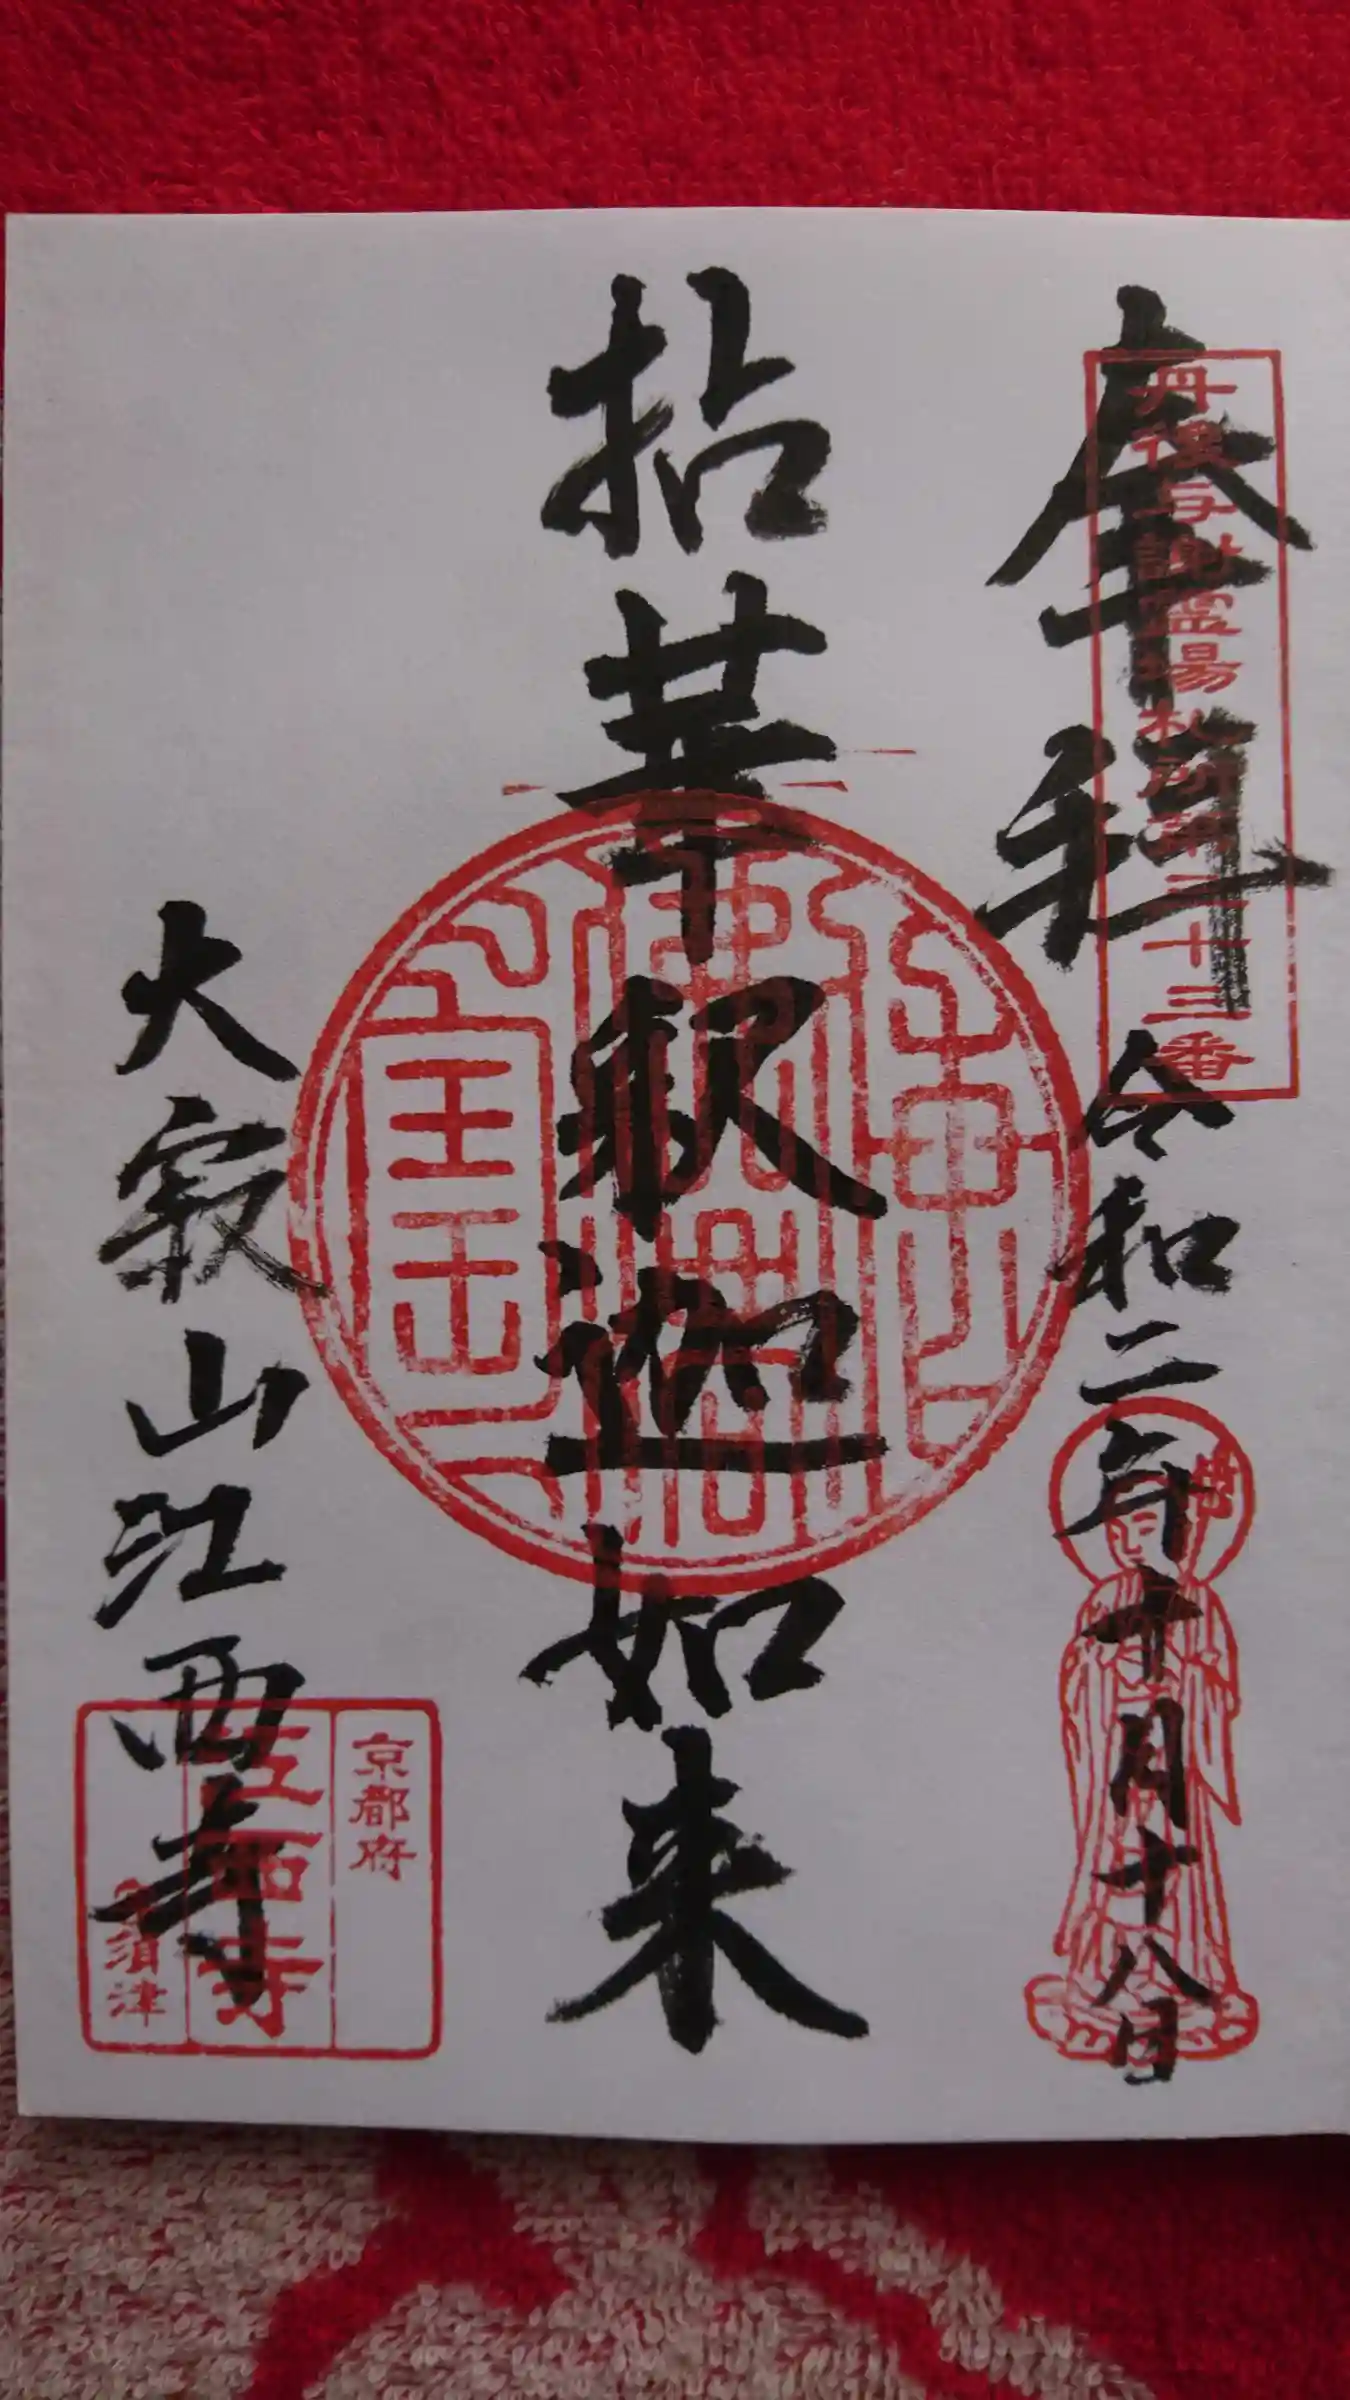 奉拝
丹後与謝霊場札所第二十三番
令和二年十月十八日
拈華釈迦如来
佛法僧寳
大寂山江西寺
京都府
江西寺
須津